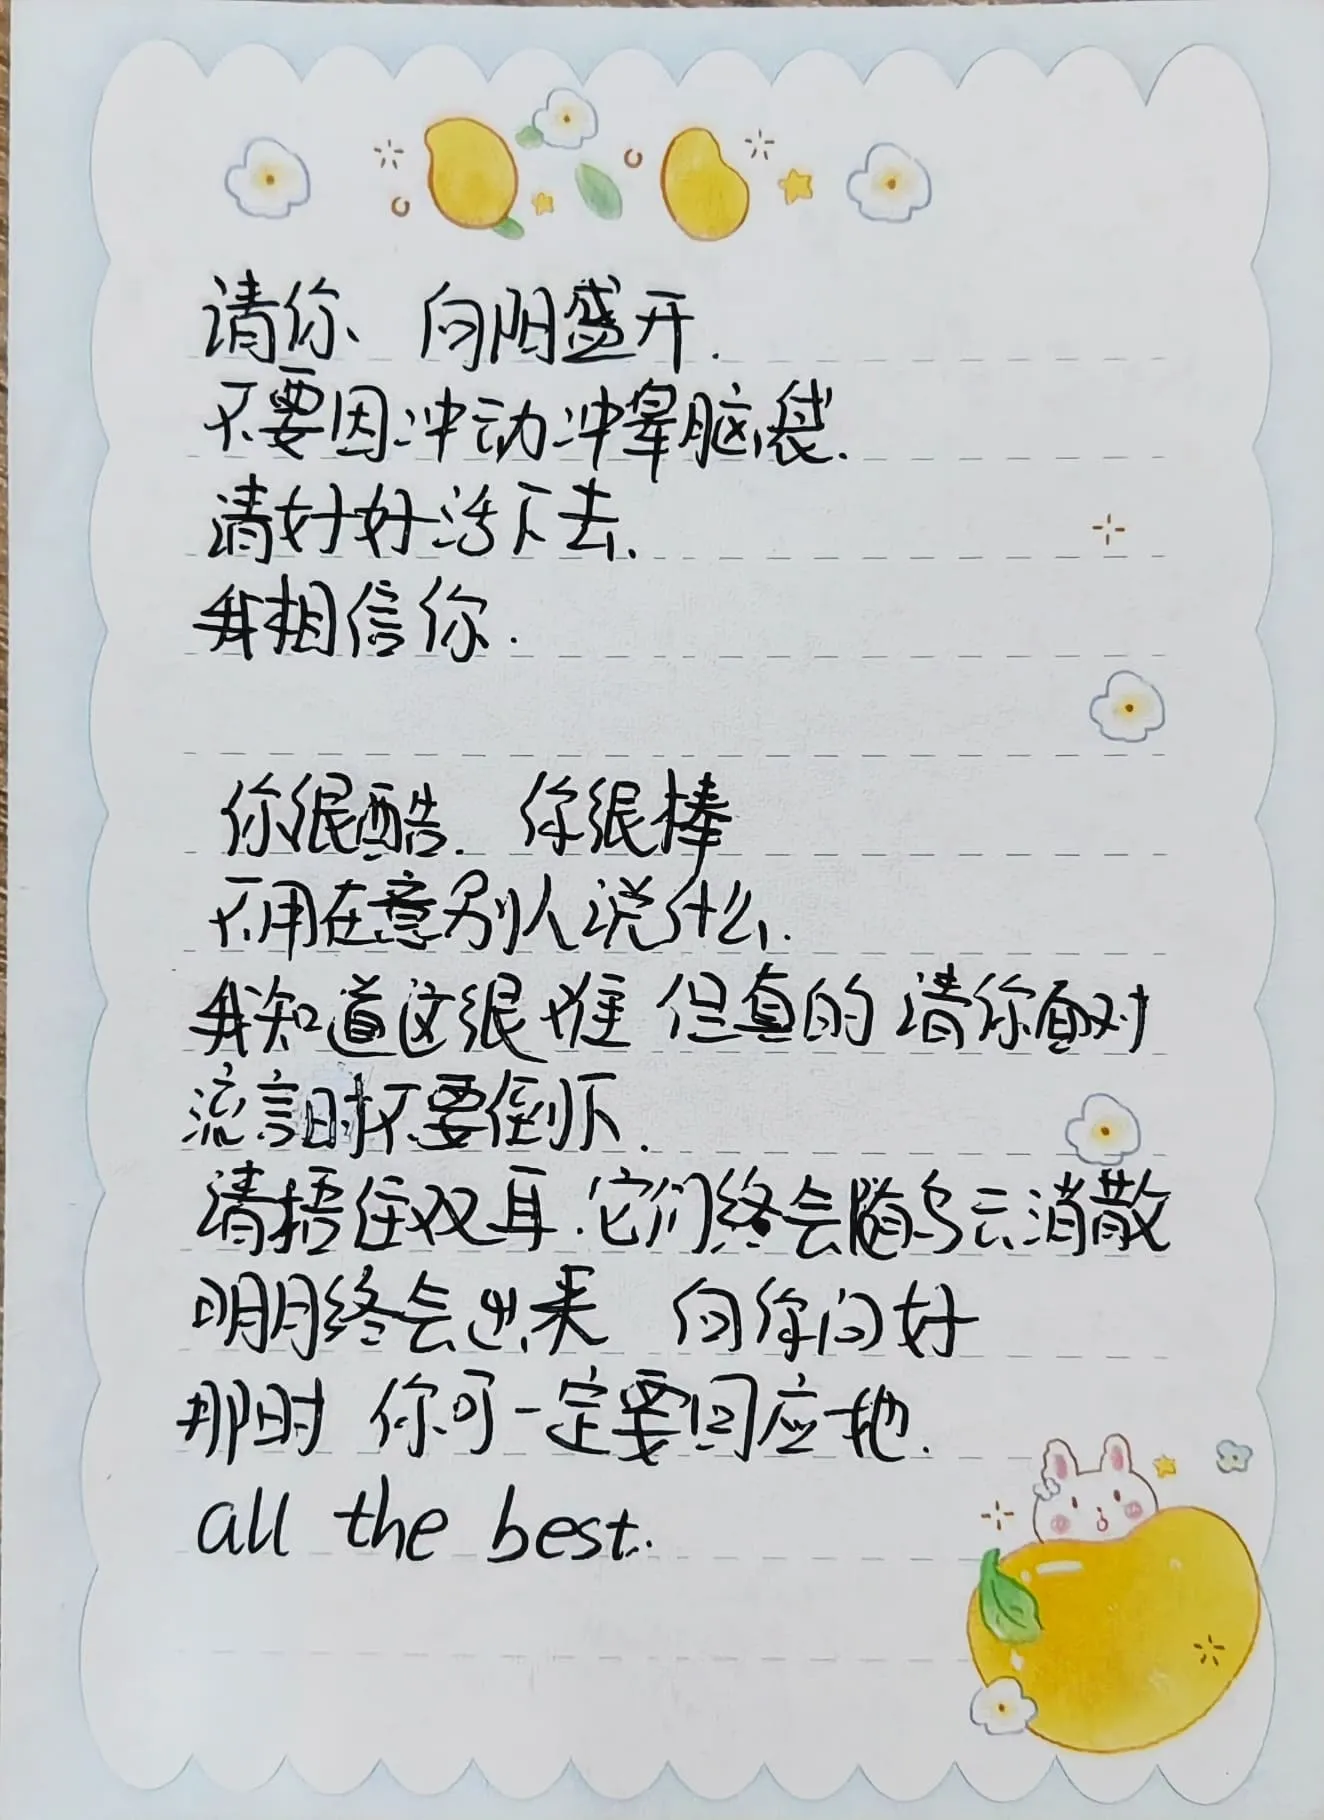 请你 向阳盛开.
不要因冲动冲晕脑袋.
请好好活下去.
我相信你.
你很酷. 你很棒
不用在意别人说什么.
我知道这很难 但真的 请你面对
流言时不要倒下.
请捂住双耳.它们终会随乌云消散
明月终会出来 向你问好
那时 你可一定要回应她.
all the best.